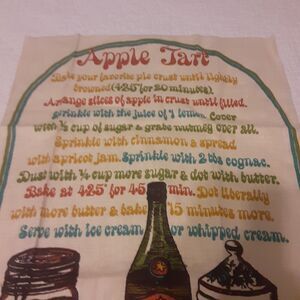 Apple Tart
Bake your favorite pie crust until lightly
browned (425 for 20 minutes).
Arrange slices of apple in crust until filled.
Sprinkle with the juice of 1 lemon. Cover
with ½ cup of sugar & grate nutmeg over all.
Sprinkle with cinnamon & spread
with apricot jam. Sprinkle with 2 tbs cognac.
Dust with ¼ cup more sugar & dot with butter.
Bake at 425° for 45 min. Dot liberally
with more butter & bake 15 minutes more.
Serve with ice cream or whipped cream.